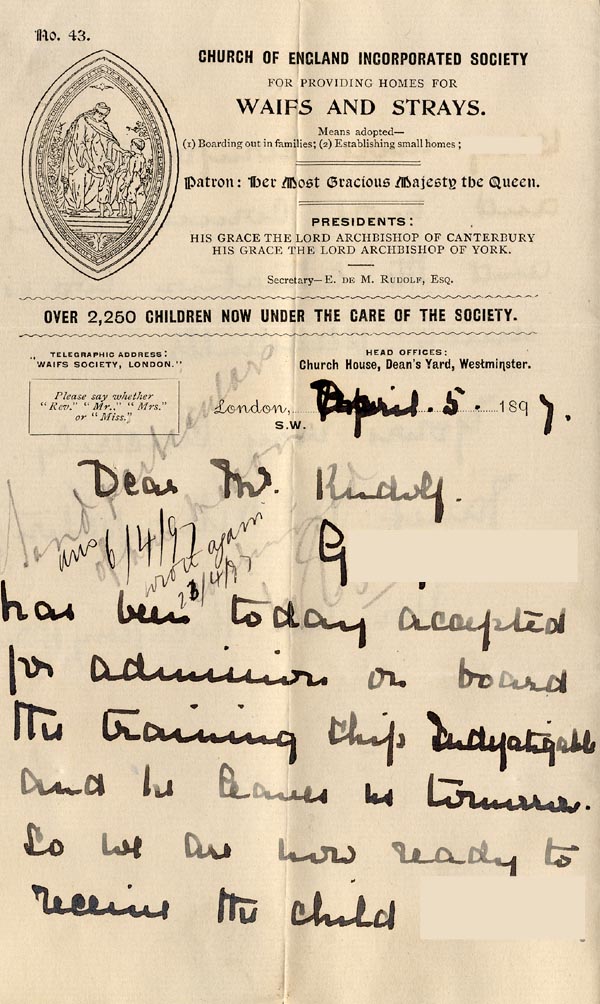 No. 43.
CHURCH OF ENGLAND INCORPORATED SOCIETY
FOR PROVIDING HOMES FOR
WAIFS AND STRAYS.
Means adopted—
(1) Boarding out in families; (2) Establishing small homes;
Patron: Her Most Gracious Majesty the Queen.
PRESIDENTS:
HIS GRACE THE LORD ARCHBISHOP OF CANTERBURY
HIS GRACE THE LORD ARCHBISHOP OF YORK.
Secretary—E. DE M. RUDOLF, ESQ.
OVER 2,250 CHILDREN NOW UNDER THE CARE OF THE SOCIETY.
TELEGRAPHIC ADDRESS:
"WAIFS SOCIETY, LONDON."
HEAD OFFICES:
Church House, Dean's Yard, Westminster.
Please say whether
"Rev." "Mr.." "Mrs."
or "Miss."
London, April. 5. 1897.
S.W.
Dear Mr. Rudolf.
Send particulars
ans 6/4/97
wrote again
23/4/97
G
has been today accepted
for admission on board
the training ship Indefatigable
and he leaves us tomorrow.
So we are now ready to
receive the child